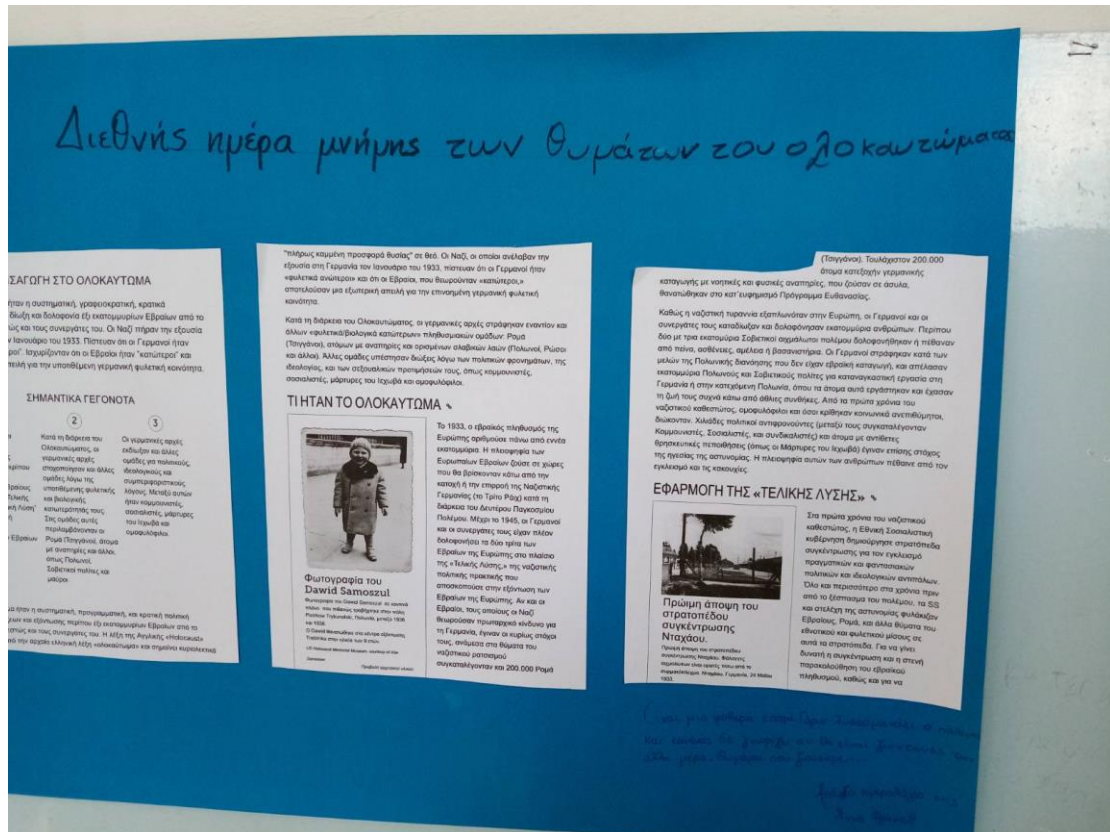 Διεθνής ημέρα μνήμης των θυμάτων του ολοκαυτώματος
ΣΑΓΩΓΗ ΣΤΟ ΟΛΟΚΑΥΤΩΜΑ
ήταν η συστηματική, γραφειοκρατική, κρατικά
δίωξη και δολοφονία έξι εκατομμυρίων Εβραίων από το
ώς και τους συνεργάτες του. Οι Ναζί πήραν την εξουσία
ν Ιανουάριο του 1933. Πίστευαν ότι οι Γερμανοί ήταν
ροι". Ισχυρίζονταν ότι οι Εβραίοι ήταν "κατώτεροι" και
πειλή για την υποτιθέμενη γερμανική φυλετική κοινότητα.
ΣΗΜΑΝΤΙΚΑ ΓΕΓΟΝΟΤΑ
2
Κατά τη διάρκεια του
Ολοκαυτώματος, οι
γερμανικές αρχές
στοχοποίησαν και άλλες
ομάδες λόγω της
υποτιθέμενης φυλετικής
και βιολογικής
κατωτερότητάς τους.
Στις ομάδες αυτές
περιλαμβάνονταν οι
Ρομά (Τσιγγάνοι), άτομα
με αναπηρίες και άλλοι,
όπως Πολωνοί,
Σοβιετικοί πολίτες και
μαύροι.
3
Οι γερμανικές αρχές
εκδίωξαν και άλλες
ομάδες για πολιτικούς,
ιδεολογικούς και
συμπεριφοριστικούς
λόγους. Μεταξύ αυτών
ήταν κομμουνιστές,
σοσιαλιστές, μάρτυρες
του Ιεχωβά και
ομοφυλόφιλοι.
μα ήταν η συστηματική, προγραμματική, και κρατική πολιτική
και εξόντωσης περίπου έξι εκατομμυρίων Εβραίων από το
εστώς και τους συνεργάτες του. Η λέξη της Αγγλικής «Holocaust»
από την αρχαία ελληνική λέξη «ολοκαύτωμα» και σημαίνει κυριολεκτικά
"πλήρως καμμένη προσφορά θυσίας" σε θεό. Οι Ναζί, οι οποίοι ανέλαβαν την
εξουσία στη Γερμανία τον Ιανουάριο του 1933, πίστευαν ότι οι Γερμανοί ήταν
«φυλετικά ανώτεροι» και ότι οι Εβραίοι, που θεωρούνταν «κατώτεροι,»
αποτελούσαν μια εξωτερική απειλή για την επινοημένη γερμανική φυλετική
κοινότητα.
Κατά τη διάρκεια του Ολοκαυτώματος, οι γερμανικές αρχές στράφηκαν εναντίον και
άλλων «φυλετικά/βιολογικά κατώτερων» πληθυσμιακών ομάδων: Ρομά
(Τσιγγάνοι), ατόμων με αναπηρίες και ορισμένων σλαβικών λαών (Πολωνοί, Ρώσοι
και άλλοι). Άλλες ομάδες υπέστησαν διώξεις λόγω των πολιτικών φρονημάτων, της
ιδεολογίας, και των σεξουαλικών προτιμήσεών τους, όπως κομμουνιστές,
σοσιαλιστές, μάρτυρες του Ιεχωβά και ομοφυλόφιλοι.
ΤΙ ΗΤΑΝ ΤΟ ΟΛΟΚΑΥΤΩΜΑ
Φωτογραφία του
Dawid Samoszul
Φωτογραφία του Dawid Samoszul σε κοντινό
πλάνο, που πιθανώς τραβήχτηκε στην πόλη
Piotrkow Trybunalski, Πολωνία, μεταξύ 1936
και 1938.
Ο Dawid θανατώθηκε στο κέντρο εξόντωσης
Τρεμπλίνκα στην ηλικία των 9 ετών.
US Holocaust Memorial Museum, courtesy of
Samoszul
Το 1933, ο εβραϊκός πληθυσμός της
Ευρώπης αριθμούσε πάνω από εννέα
εκατομμύρια. Η πλειοψηφία των
Ευρωπαίων Εβραίων ζούσε σε χώρες
που θα βρίσκονταν κάτω από την
κατοχή ή την επιρροή της Ναζιστικής
Γερμανίας (το Τρίτο Ράιχ) κατά τη
διάρκεια του Δευτέρου Παγκοσμίου
Πολέμου. Μέχρι το 1945, οι Γερμανοί
και οι συνεργάτες τους είχαν πλέον
δολοφονήσει τα δύο τρίτα των
Εβραίων της Ευρώπης στο πλαίσιο
της «Τελικής Λύσης,» της ναζιστικής
πολιτικής πρακτικής που
αποσκοπούσε στην εξόντωση των
Εβραίων της Ευρώπης. Αν και οι
Εβραίοι, τους οποίους οι Ναζί
θεωρούσαν πρωταρχικό κίνδυνο για
τη Γερμανία, έγιναν οι κυρίως στόχοι
τους, ανάμεσα στα θύματα του
ναζιστικού ρατσισμού
συγκαταλέγονταν και 200.000 Ρομά
(Τσιγγάνοι). Τουλάχιστον 200.000
άτομα κατεξοχήν γερμανικής
καταγωγής με νοητικές και φυσικές αναπηρίες, που ζούσαν σε άσυλα,
θανατώθηκαν στο κατ΄ευφημισμό Πρόγραμμα Ευθανασίας.
Καθώς η ναζιστική τυραννία εξαπλωνόταν στην Ευρώπη, οι Γερμανοί και οι
συνεργάτες τους καταδίωξαν και δολοφόνησαν εκατομμύρια ανθρώπων. Περίπου
δύο με τρία εκατομύρια Σοβιετικοί αιχμάλωτοι πολέμου δολοφονήθηκαν ή πέθαναν
από πείνα, ασθένειες, αμέλεια ή βασανιστήρια. Οι Γερμανοί στράφηκαν κατά των
μελών της Πολωνικής διανόησης που δεν είχαν εβραϊκή καταγωγή, και απέλασαν
εκατομμύρια Πολωνούς και Σοβιετικούς πολίτες για καταναγκαστική εργασία στη
Γερμανία ή στην κατεχόμενη Πολωνία, όπου τα άτομα αυτά εργάστηκαν και έχασαν
τη ζωή τους συχνά κάτω από άθλιες συνθήκες. Από τα πρώτα χρόνια του
ναζιστικού καθεστώτος, ομοφυλόφιλοι και όσοι κρίθηκαν κοινωνικά ανεπιθύμητοι,
διώκονταν. Χιλιάδες πολιτικοί αντιφρονούντες (μεταξύ τους συγκαταλέγονταν
Κομμουνιστές, Σοσιαλιστές, και συνδικαλιστές) και άτομα με αντίθετες
θρησκευτικές πεποιθήσεις (όπως οι Μάρτυρες του Ιεχωβά) έγιναν επίσης στόχος
της ηγεσίας της αστυνομίας. Η πλειοψηφία αυτών των ανθρώπων πέθαινε από τον
εγκλεισμό και τις κακουχίες.
ΕΦΑΡΜΟΓΗ ΤΗΣ «ΤΕΛΙΚΗΣ ΛΥΣΗΣ»
Πρώιμη άποψη του
στρατοπέδου
συγκέντρωσης
Νταχάου.
Πρώιμη άποψη του στρατοπέδου
συγκέντρωσης Νταχάου.
Νταχάου, Γερμανία, 24 Μαΐου
1933.
Στα πρώτα χρόνια του ναζιστικού
καθεστώτος, η Εθνική Σοσιαλιστική
κυβέρνηση δημιούργησε στρατόπεδα
συγκέντρωσης για τον εγκλεισμό
πραγματικών και φαντασιακών
πολιτικών και ιδεολογικών αντιπάλων.
Όλο και περισσότερο στα χρόνια πριν
από το ξέσπασμα του πολέμου, τα SS
και στελέχη της αστυνομίας φυλάκιζαν
Εβραίους, Ρομά, και άλλα θύματα του
εθνοτικού και φυλετικού μίσους σε
αυτά τα στρατόπεδα. Για να γίνει
δυνατή η συγκέντρωση και η στενή
παρακολούθηση του εβραϊκού
πληθυσμού, καθώς και για να